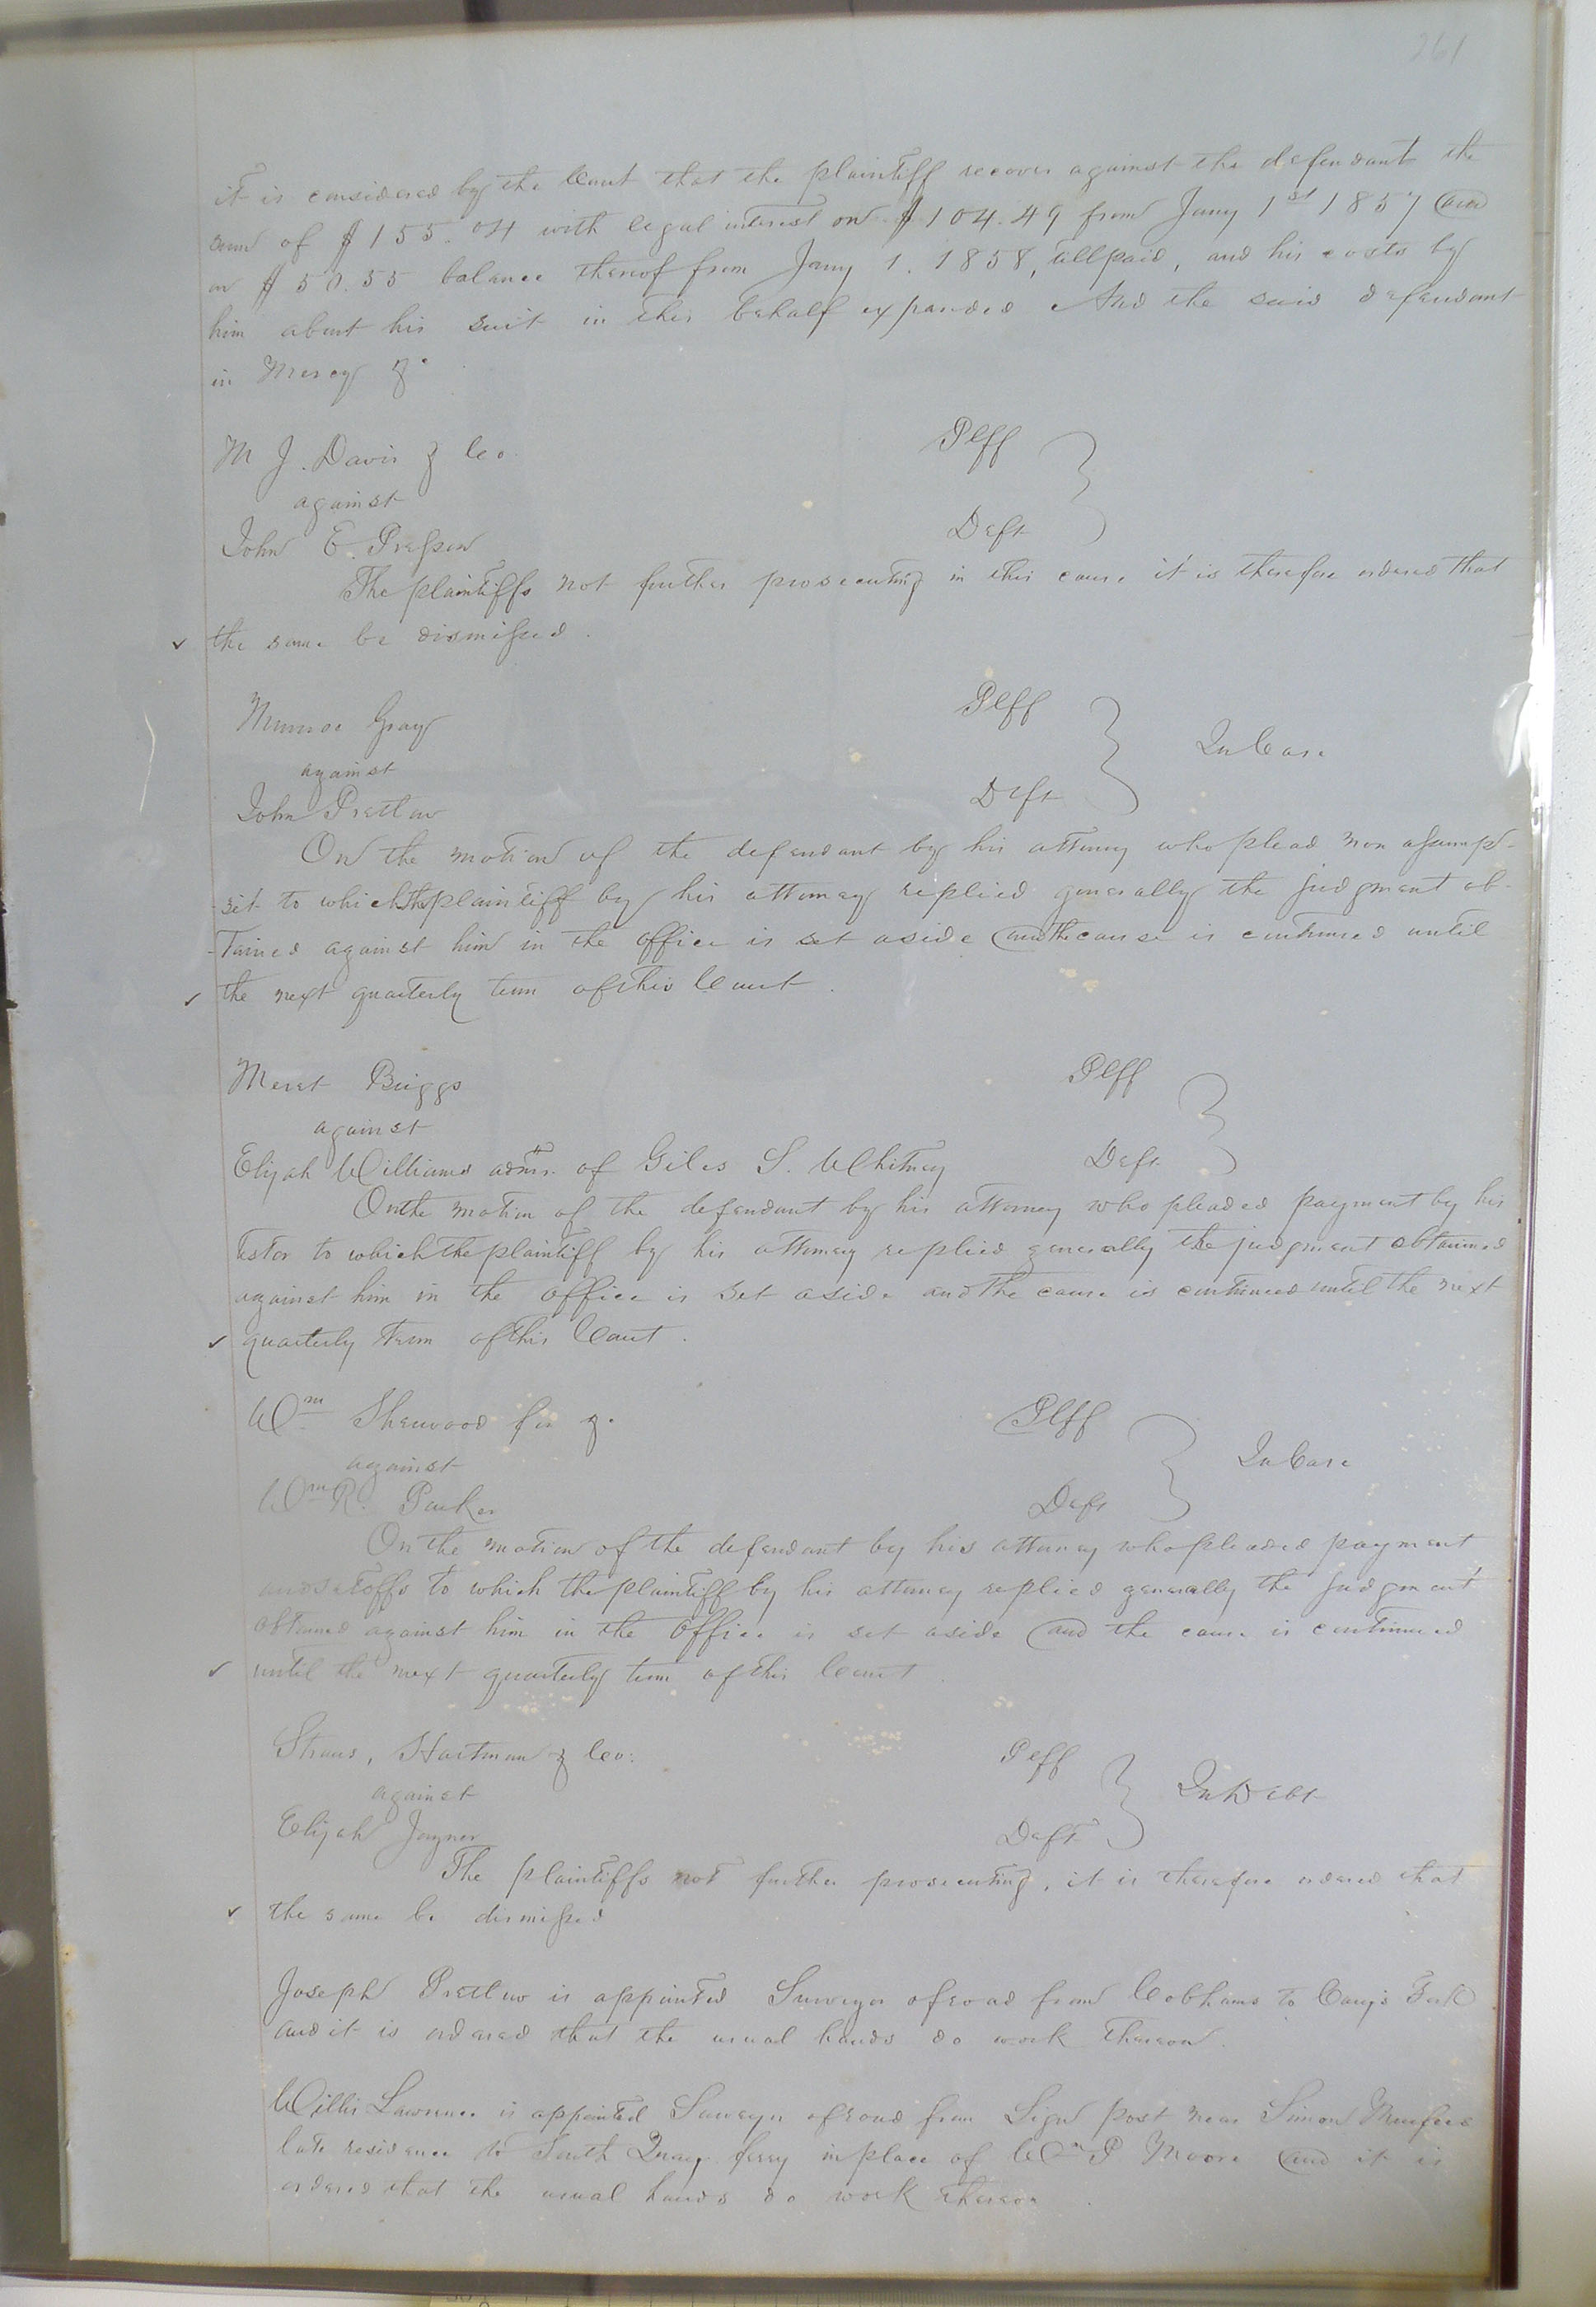 261
it is considered by the Court that the plaintiff recover against the defendant the
sum of $155.04 with legal interest on $104.49 from Jany 1st 1857 and
on $50.55 balance thereof from Jany 1. 1858, till paid, and his costs by
him about his suit in this behalf expended And the said defendant
in Mercy &c
M J. Davis & Co. Plff
against
John E. Presson Deft
The plaintiffs not further prosecuting in this cause it is therefore ordered that
the same be dismissed.
Munroe Gray Plff
against In Case
John Pretlow Deft
On the motion of the defendant by his attorney who plead non assump-
-sit to which the plaintiff by his attorney replied generally the judgment ob-
-tained against him in the office is set aside and the cause is continued until
the next quarterly term of this Court.
Meret Briggs Plff
against
Elijah Williams admr. of Giles S. Whitney Deft
On the motion of the defendant by his attorney who pleaded payment by his
testor to which the plaintiff by his attorney replied generally the judgment obtained
against him in the office is set aside and the cause is continued until the next
quarterly term of this Court.
Wm Sherwood for &. Plff
against In Case
Wm R. Parker Deft
On the motion of the defendant by his attorney who pleaded payment
and setoffs to which the plaintiff by his attorney replied generally the judgment
obtained against him in the office is set aside and the cause is continued
until the next quarterly term of this Court
Straus, Hartman & Co: Plff
against In Debt
Elijah Joyner Deft
The plaintiffs not further prosecuting, it is therefore ordered that
the same be dismissed
Joseph Pretlow is appointed Surveyor of road from Cobhams to Cary's
and it is ordered that the usual hands do work thereon.
Willis Lawrence is appointed Surveyor of road from Sign post near Simon Murfees
late residence to South Quay ferry in place of Wm P Moore and it is
ordered that the usual hands do work thereon.